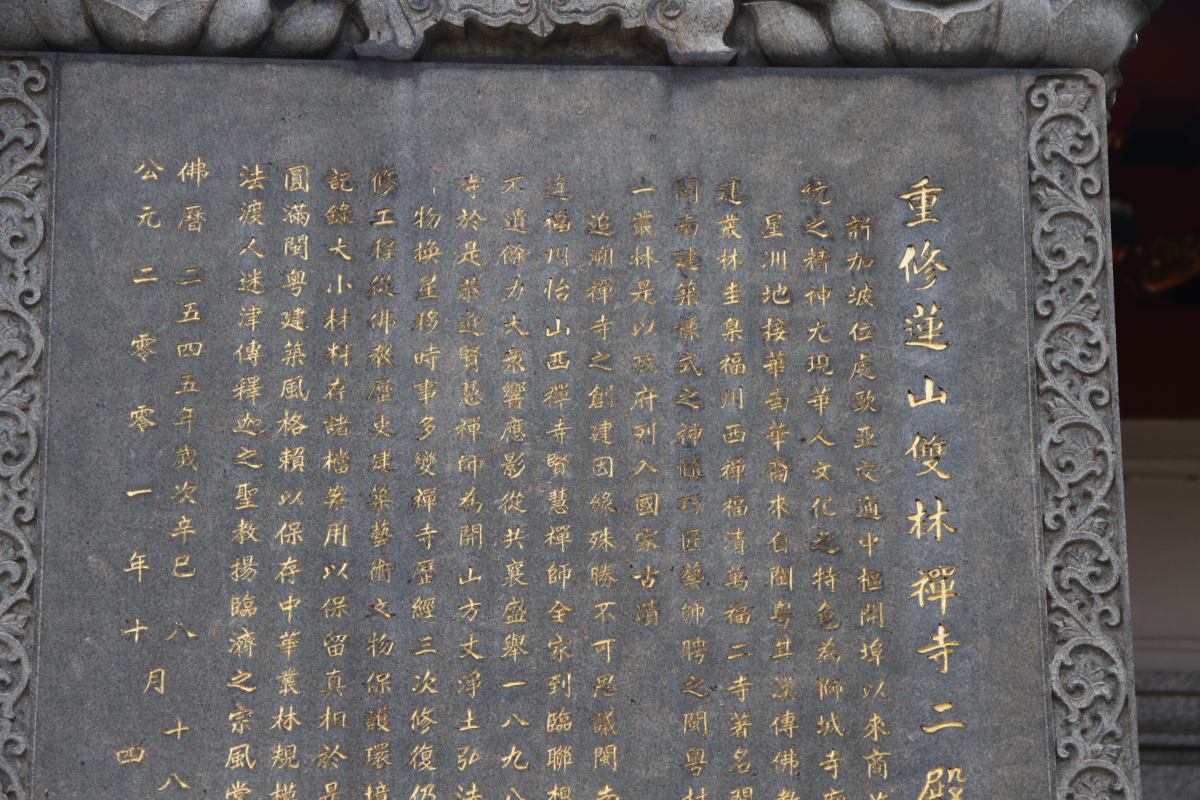 重修蓮山雙林禪寺二殿
新加坡位處歐亞交通中樞開埠以來商
統之精神尤現華人文化之特色為獅城寺廟
星洲地接華南華裔來自閩粵其漢傳佛教
建叢林圭臬福州西禪福清萬福二寺著名閩
閩南建築樣式之神髓巧匠藝師聘之閩粵材
一叢林是以政府列入國家古蹟
追溯禪寺之創建因緣殊勝不可思議閩南
達福州怡山西禪寺賢慧禪師全家到臨聯想
不遺餘力大衆響應影從共襄盛舉一八九八
寺於是恭迎賢慧禪師為開山方丈淨土弘法
物換星移時事多變禪寺歷經三次修復仍
修工程從佛教歷史建築藝術文物保護環境
記錄大小材料存諸檔案用以保留真相於是
圓滿閩粵建築風格賴以保存中華叢林規模
法渡人迷津傳釋迦之聖教揚臨濟之宗風當
佛曆 二五四五年歲次辛巳 八月十八
公元 二零零一年十月四